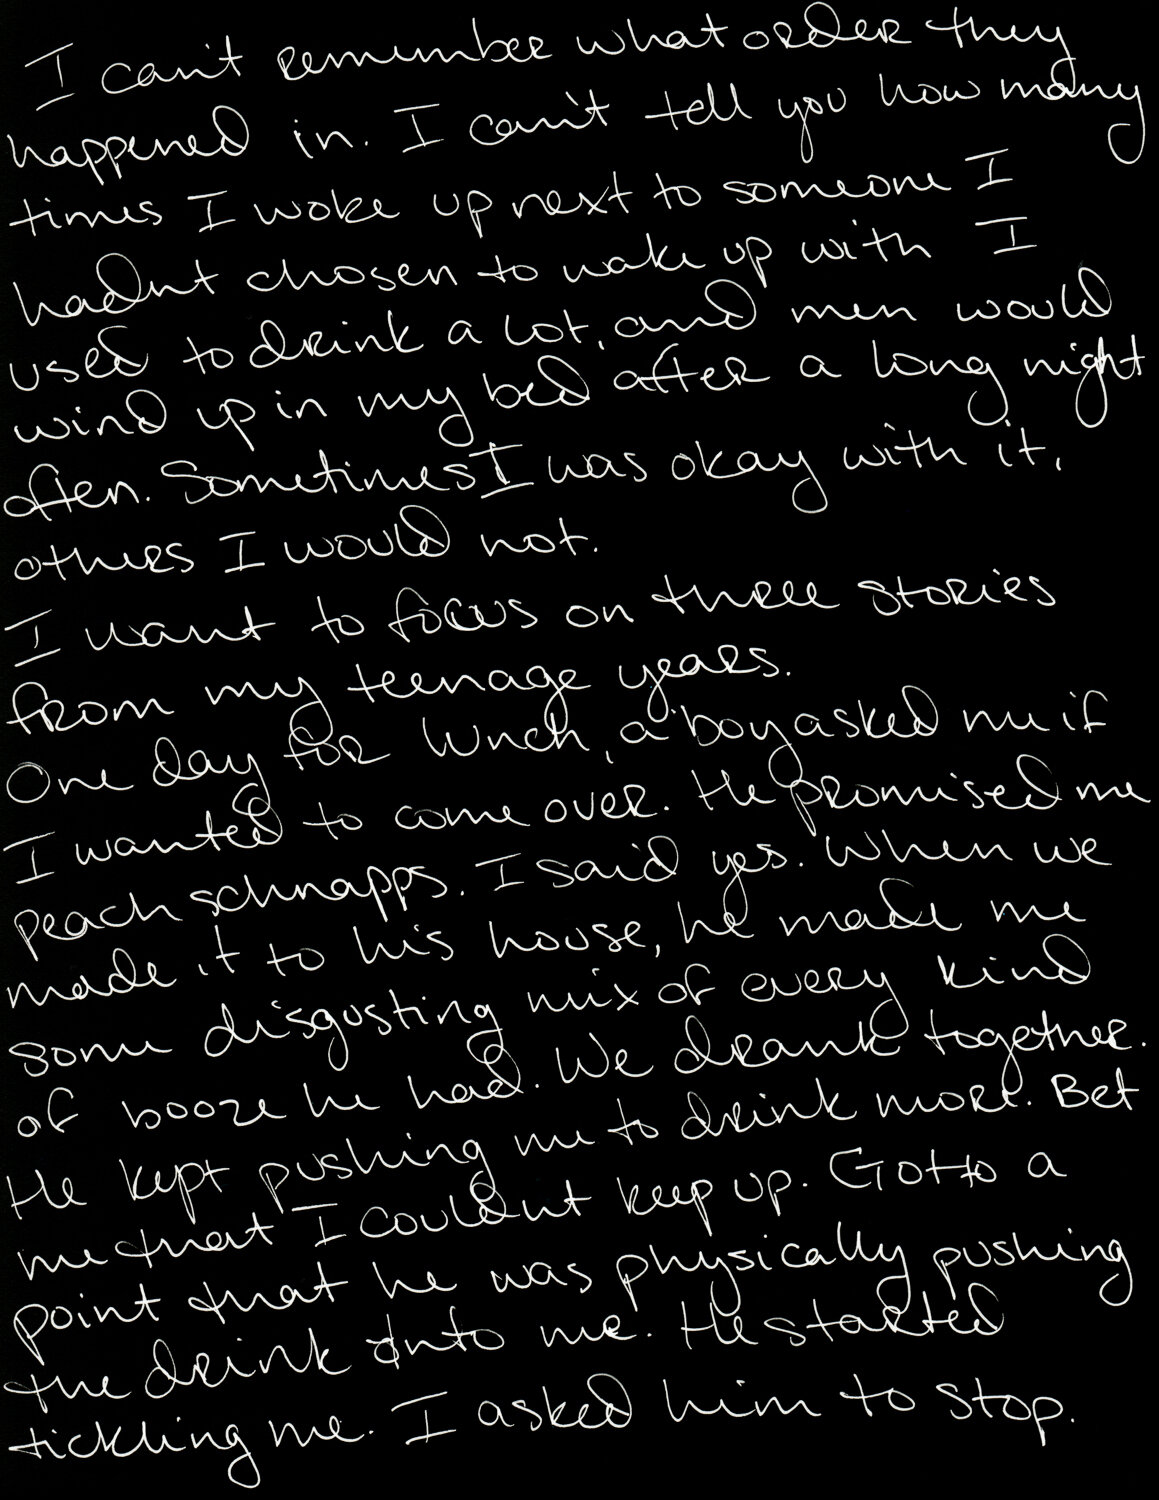 I can't remember what order they
happened in. I can't tell you how many
times I woke up next to someone I
hadnt chosen to wake up with I
used to drink a lot, and men would
wind up in my bed after a long night
often. Sometimes I was okay with it,
others I would not.
I want to focus on three stories
from my teenage years.
One day for lunch, a boy asked me if
I wanted to come over. He promised me
peach schnapps. I said yes. When we
made it to his house, he made me
some disgusting mix of every kind
of booze he had. We drank together.
He kept pushing me to drink more. Bet
me that I couldnt keep up. Got to a
point that he was physically pushing
the drink into me. He started
tickling me. I asked him to stop.